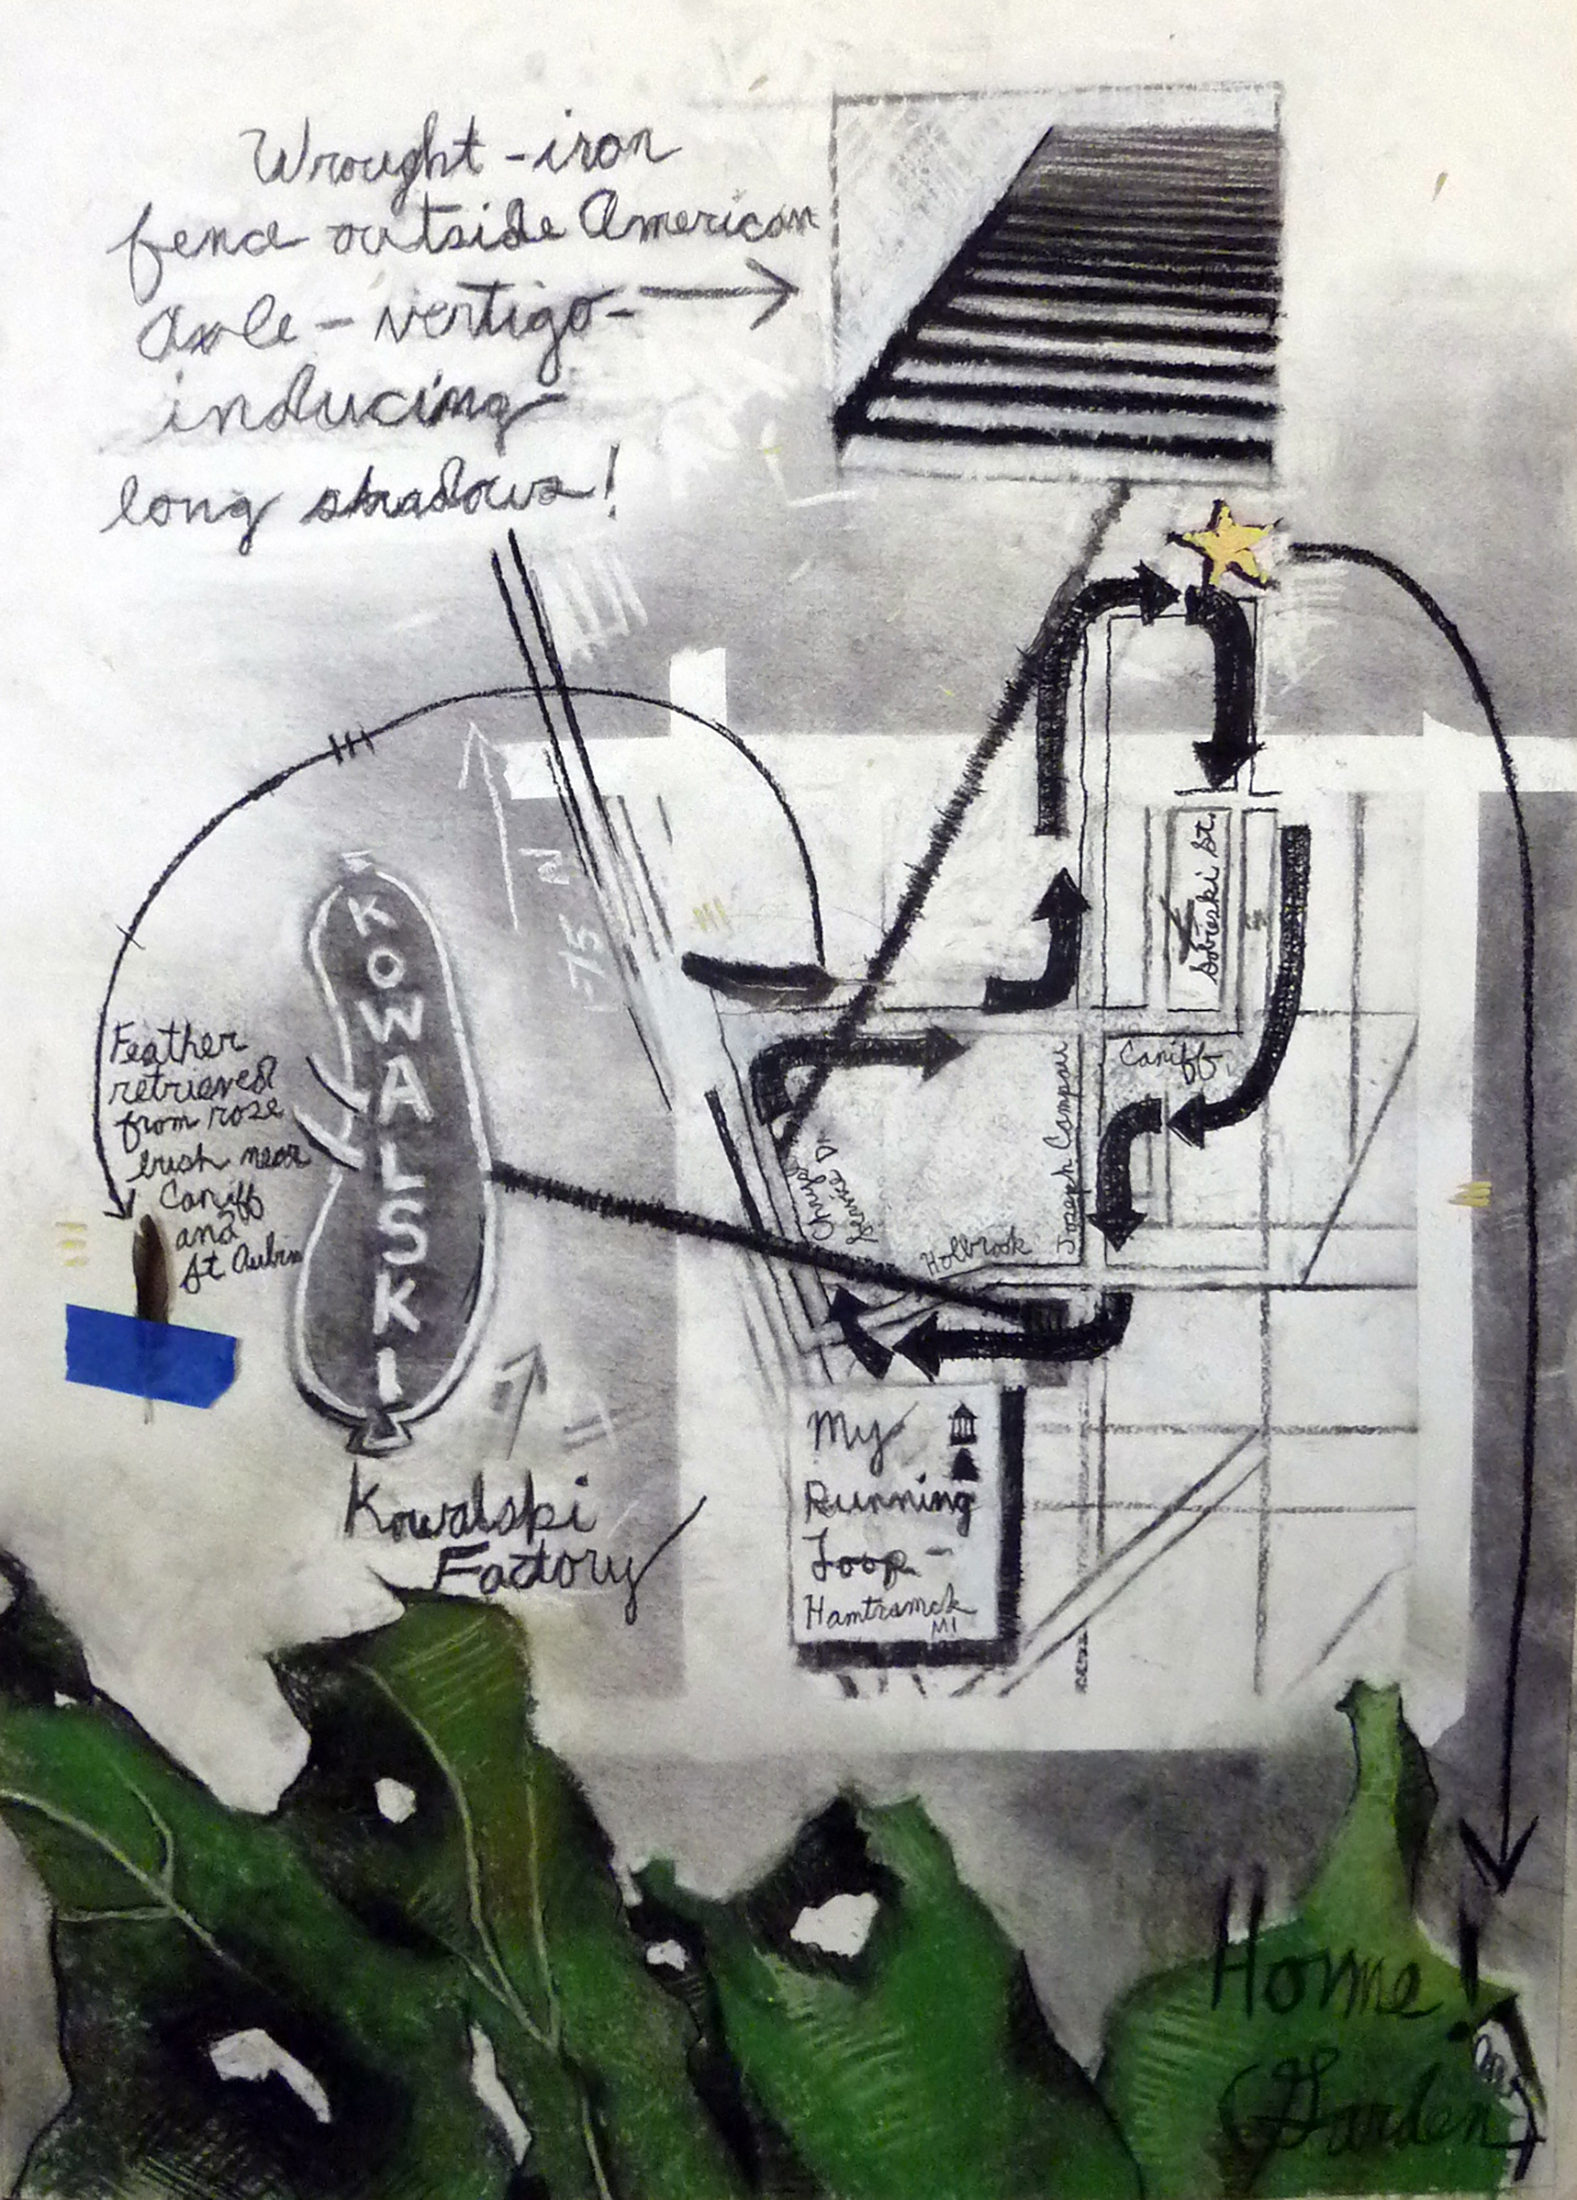 Wrought-iron
fence outside American
Axle - vertigo-
inducing
long shadows!
N
75
KOWALSKI
Feather
retrieved
from rose
bush near
Caniff
and
St Aubin
Kowalski
Factory
Sobieski St.
Caniff
Joseph Campau
Chrysler
Service Dr.
Holbrook
My
Running
Loop-
Hamtramck
MI
Home!
(Garden)